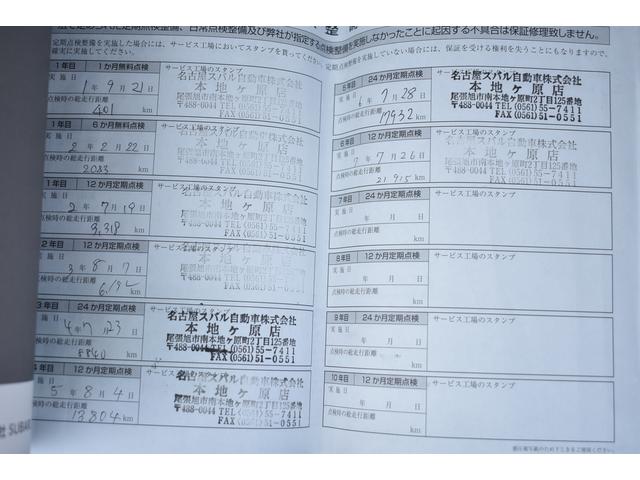 に定められた定期点検整備、日常点検整備及び弊社が指定する点検整備を実施しなかったことに起因する不具合は保証修理致しません。
定期点検整備を実施した場合には、サービス工場においてスタンプを貰ってください。
定期点検整備を実施していない場合には、保証を受ける権利を失うことにもなりますので、
確実に実施してください。
1年目 1か月無料点検 サービス工場のスタンプ
実施日
1年9月21日
点検時の総走行距離
401 km
名古屋スバル自動車株式会社
本地ヶ原店
尾張旭市南本地ヶ原町2丁目125番地
〒488-0044 TEL(0561)55-7411
FAX(0561)51-0551
1年目 6か月無料点検 サービス工場のスタンプ
実施日
2年2月22日
点検時の総走行距離
2083 km
名古屋スバル自動車株式会社
本地ヶ原店
尾張旭市南本地ヶ原町2丁目125番地
〒488-0044 TEL(0561)55-7411
FAX(0561)51-0551
1年目 12か月定期点検 サービス工場のスタンプ
実施日
2年7月19日
点検時の総走行距離
3,318 km
名古屋スバル自動車株式会社
本地ヶ原店
尾張旭市南本地ヶ原町2丁目125番地
〒488-0044 TEL(0561)55-7411
FAX(0561)51-0551
2年目 12か月定期点検 サービス工場のスタンプ
実施日
3年8月7日
点検時の総走行距離
km
名古屋スバル自動車株式会社
本地ヶ原店
尾張旭市南本地ヶ原町2丁目125番地
〒488-0044 TEL(0561)55-7411
FAX(0561)51-0551
3年目 24か月定期点検 サービス工場のスタンプ
実施日
4年7月23日
点検時の総走行距離
8840 km
名古屋スバル自動車株式会社
本地ヶ原店
尾張旭市南本地ヶ原町2丁目125番地
〒488-0044 TEL(0561)55-7411
FAX(0561)51-0551
4年目 12か月定期点検 サービス工場のスタンプ
実施日
5年8月4日
点検時の総走行距離
13804 km
名古屋スバル自動車株式会社
本地ヶ原店
尾張旭市南本地ヶ原町2丁目125番地
〒488-0044 TEL(0561)55-7411
FAX(0561)51-0551
5年目 24か月定期点検
実施日
6年7月28日
点検時の総走行距離
17932 km
名古屋スバル自動車株式会社
本地ヶ原店
尾張旭市南本地ヶ原町2丁目125番地
〒488-0044 TEL(0561)55-7411
FAX(0561)51-0551
6年目 12か月定期点検 サービス工場のスタンプ
実施日
7年7月26日
点検時の総走行距離
21915 km
名古屋スバル自動車株式会社
本地ヶ原店
尾張旭市南本地ヶ原町2丁目125番地
〒488-0044 TEL(0561)55-7411
FAX(0561)51-0551
7年目 24か月定期点検 サービス工場のスタンプ
実施日
年 月 日
点検時の総走行距離
km
8年目 12か月定期点検 サービス工場のスタンプ
実施日
年 月 日
点検時の総走行距離
km
9年目 24か月定期点検 サービス工場のスタンプ
実施日
年 月 日
点検時の総走行距離
km
10年目 12か月定期点検 サービス工場のスタンプ
実施日
年 月 日
点検時の総走行距離
km
社 SUBAR